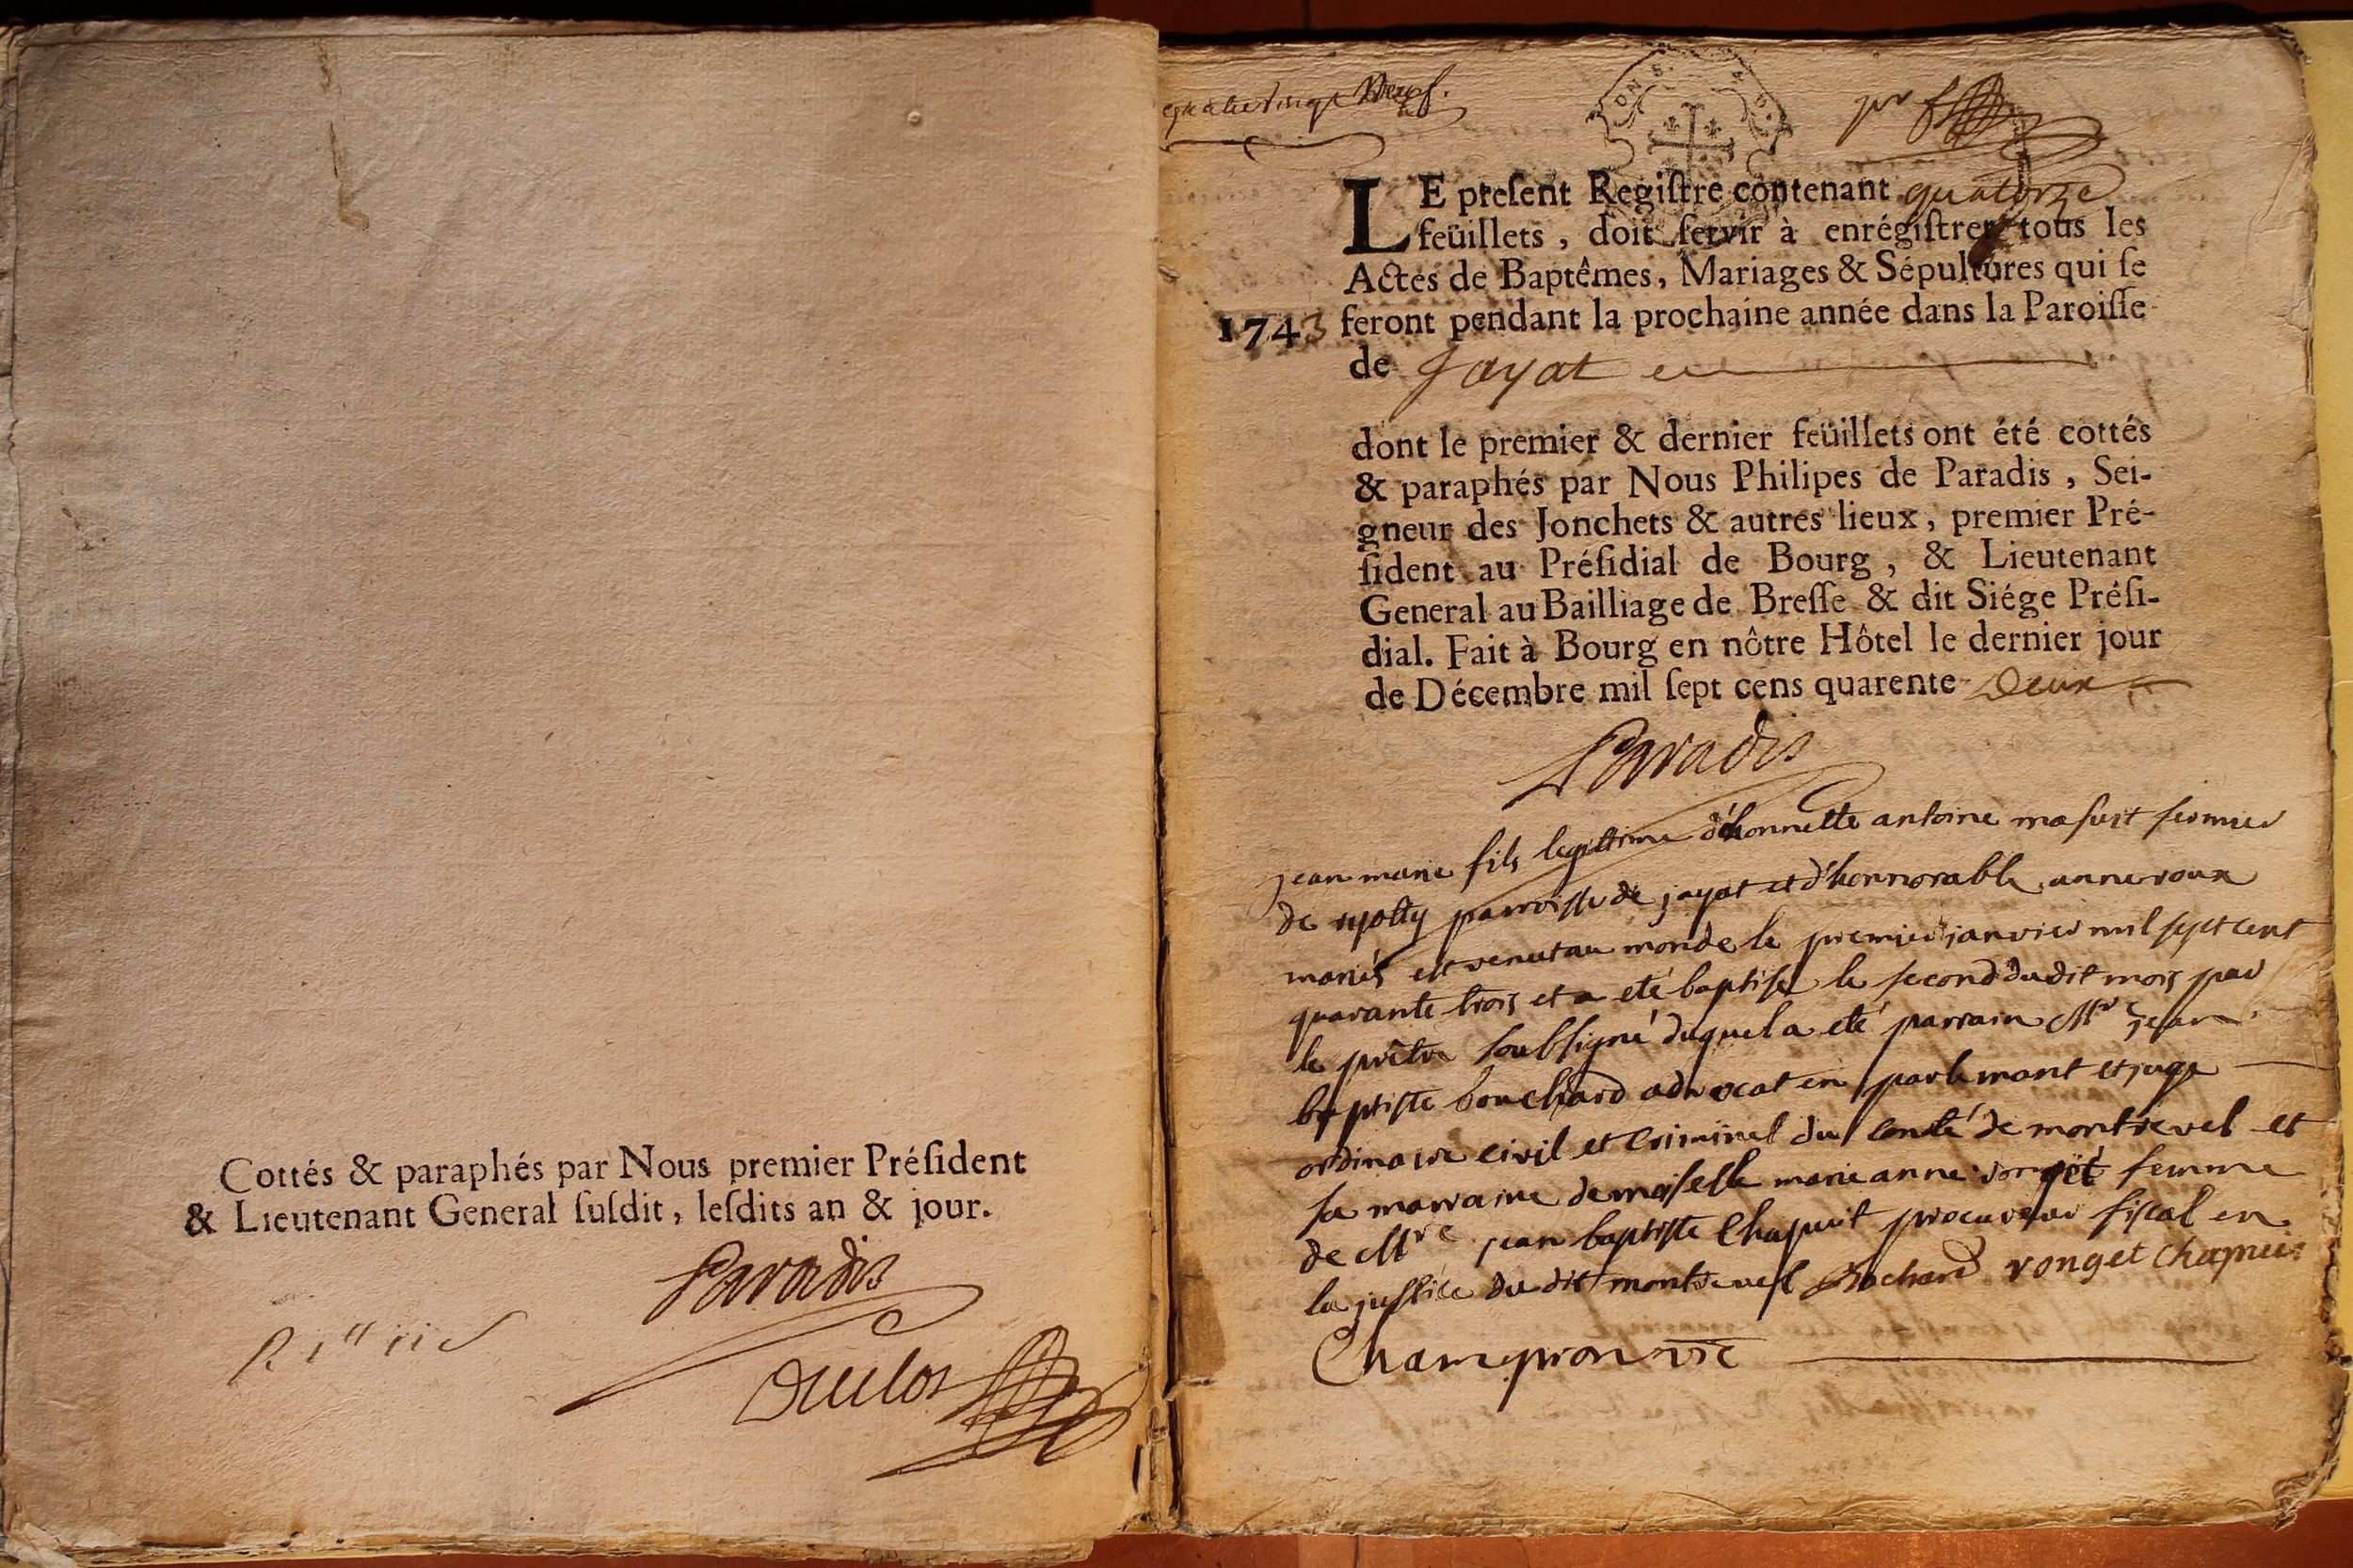 Cottés & paraphés par Nous premier Préſident
& Lieutenant General ſuſdit, leſdits an & jour.
Paradis
Duclos
quatre vingt Neuf.
LE preſent Regiſtre contenant quatorze
feüillets, doit ſervir à enrégiſtrer tous les
Actes de Baptêmes, Mariages & Sépultures qui ſe
1743 feront pendant la prochaine année dans la Paroiſſe
de Jayat
dont le premier & dernier feüillets ont été cottés
& paraphés par Nous Philipes de Paradis, Sei-
gneur des Jonchets & autres lieux, premier Pré-
ſident au Préſidial de Bourg, & Lieutenant
General au Bailliage de Breſſe & dit Siége Préſi-
dial. Fait à Bourg en nôtre Hôtel le dernier jour
de Décembre mil ſept cens quarente Deux
Paradis
jean marie fils legittime d'honnette antoine maſuit fermier
de paroiſſe de jayat et d'honnorable anne roux
mariés est venut au monde le premier janvier mil ſept cent
quarante trois et a eté baptiſé le second du dit mois par
le prêtre soubſigné duquel a eté parrain Mre jean
baptiste bouchard advocat en parlemant et juge
ordinaire civil et criminel du conté de montrevel et
sa marraine demoiſelle marie anne ronget femme
de Mre jean baptiste Chapuit procureur fiſcal en
la juſtice du dit montrevel Bochard ronget Chapuis
Champion vre